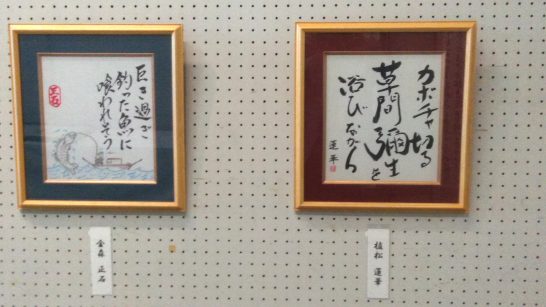 カボチャ切る
草間彌生を
浴びながら
蓮華
植松 蓮華
巨き過ぎ
釣った魚に
喰われそう
正石
金森 正石